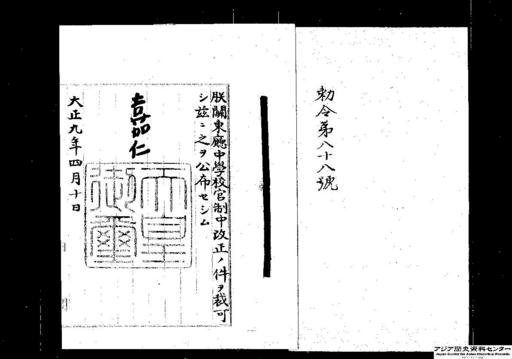 勅令第八十八號
朕關東廳中學校官制中改正ノ件ヲ裁可
シ茲ニ之ヲ公布セシム
嘉仁
天皇
御璽
大正九年四月十日
アジア歴史資料センター
Japan Center for Asian Historical Records